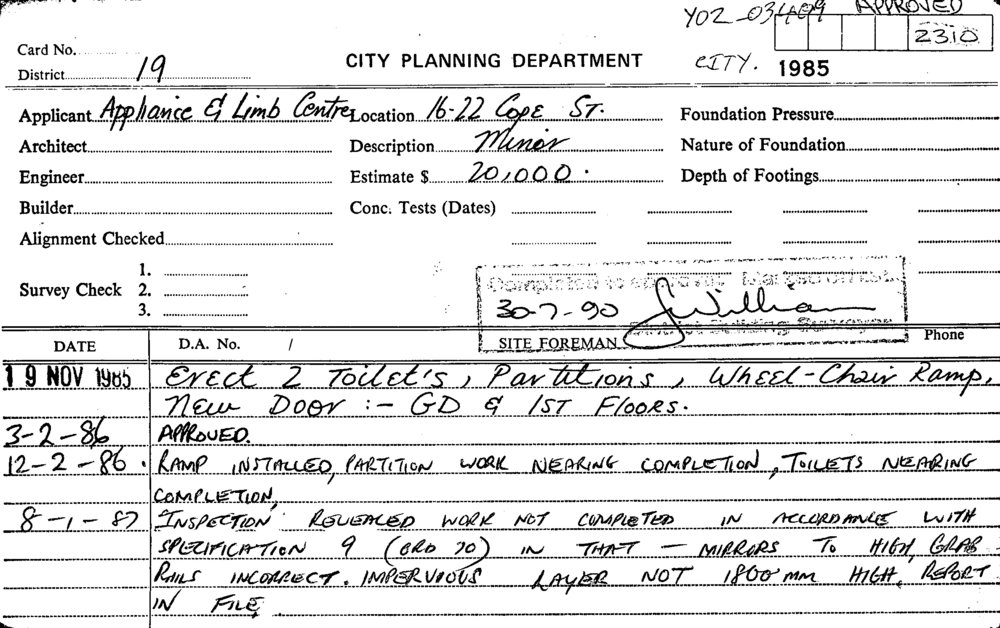 Y02-03409 APPROVED
2310
Card No.
District 19
CITY PLANNING DEPARTMENT
CITY. 1985
Applicant Appliance & Limb Centre Location 16-22 Cope St. Foundation Pressure
Architect Description Minor Nature of Foundation
Engineer Estimate $ 20,000. Depth of Footings
Builder Conc. Tests (Dates)
Alignment Checked
1.
Survey Check 2.
3.
Completed to
30-7-90
Building Surveyor
SITE FOREMAN Phone
DATE D.A. No. /
19 NOV 1985 Erect 2 Toilet's, Partitions, Wheel-Chair Ramp,
New Door :- GD & 1ST Floors.
3-2-86 APPROVED.
12-2-86. RAMP INSTALLED, PARTITION WORK NEARING COMPLETION, TOILETS NEARING
COMPLETION,
8-1-87 'INSPECTION' REVEALED WORK NOT COMPLETED IN ACCORDANCE WITH
SPECIFICATION 9 (ORD 70) IN THAT - MIRRORS TO HIGH, GRAB
RAILS INCORRECT. IMPERVIOUS LAYER NOT 1800 mm HIGH, REPORT
IN FILE